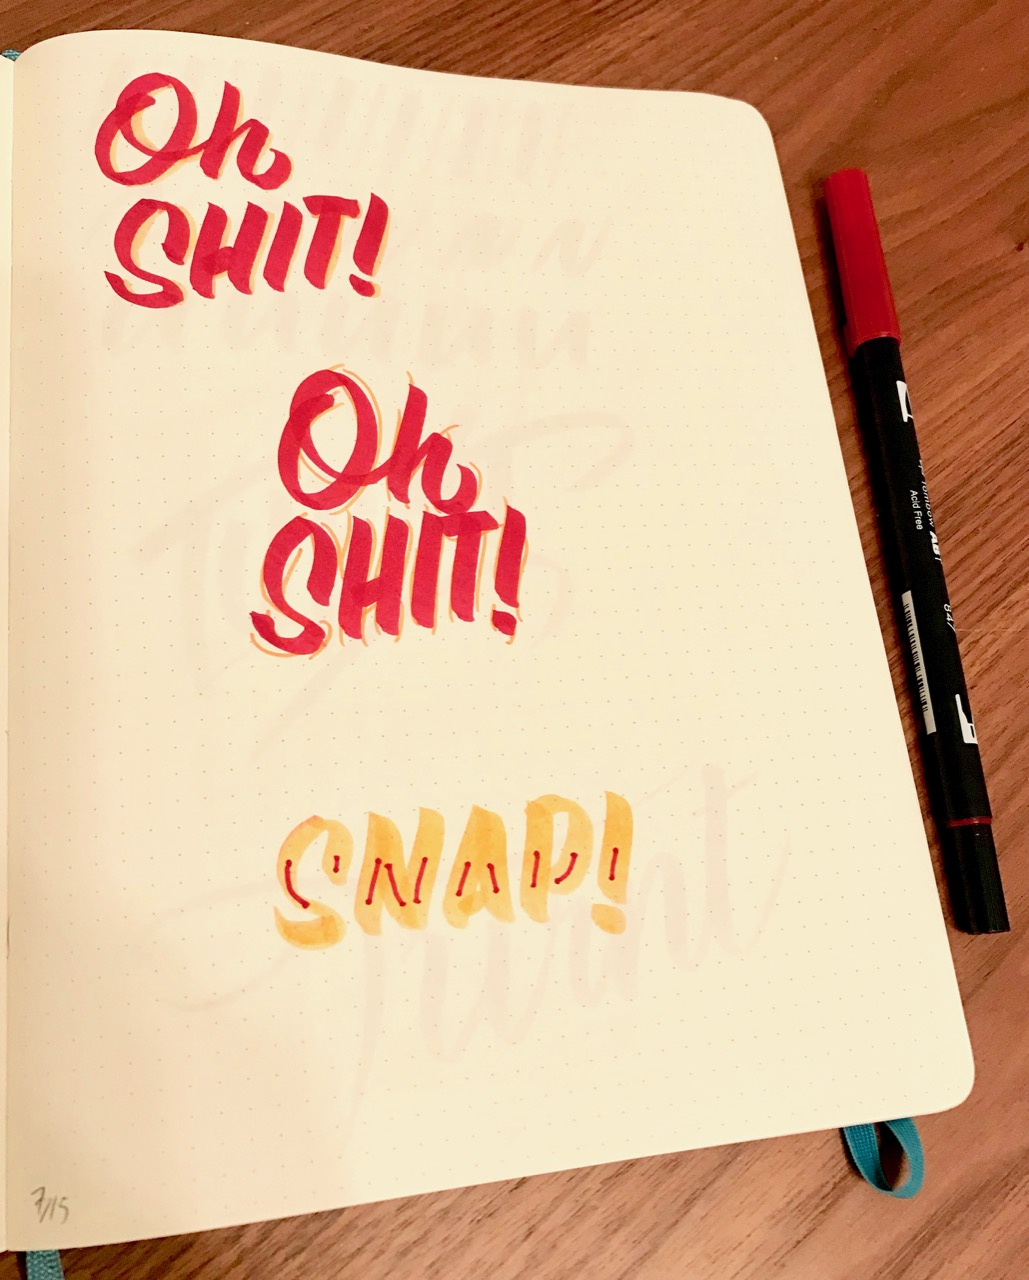 Oh
SHIT!
Oh
SHIT!
SNAP!
7/15
Tombow ABT
Acid Free
847